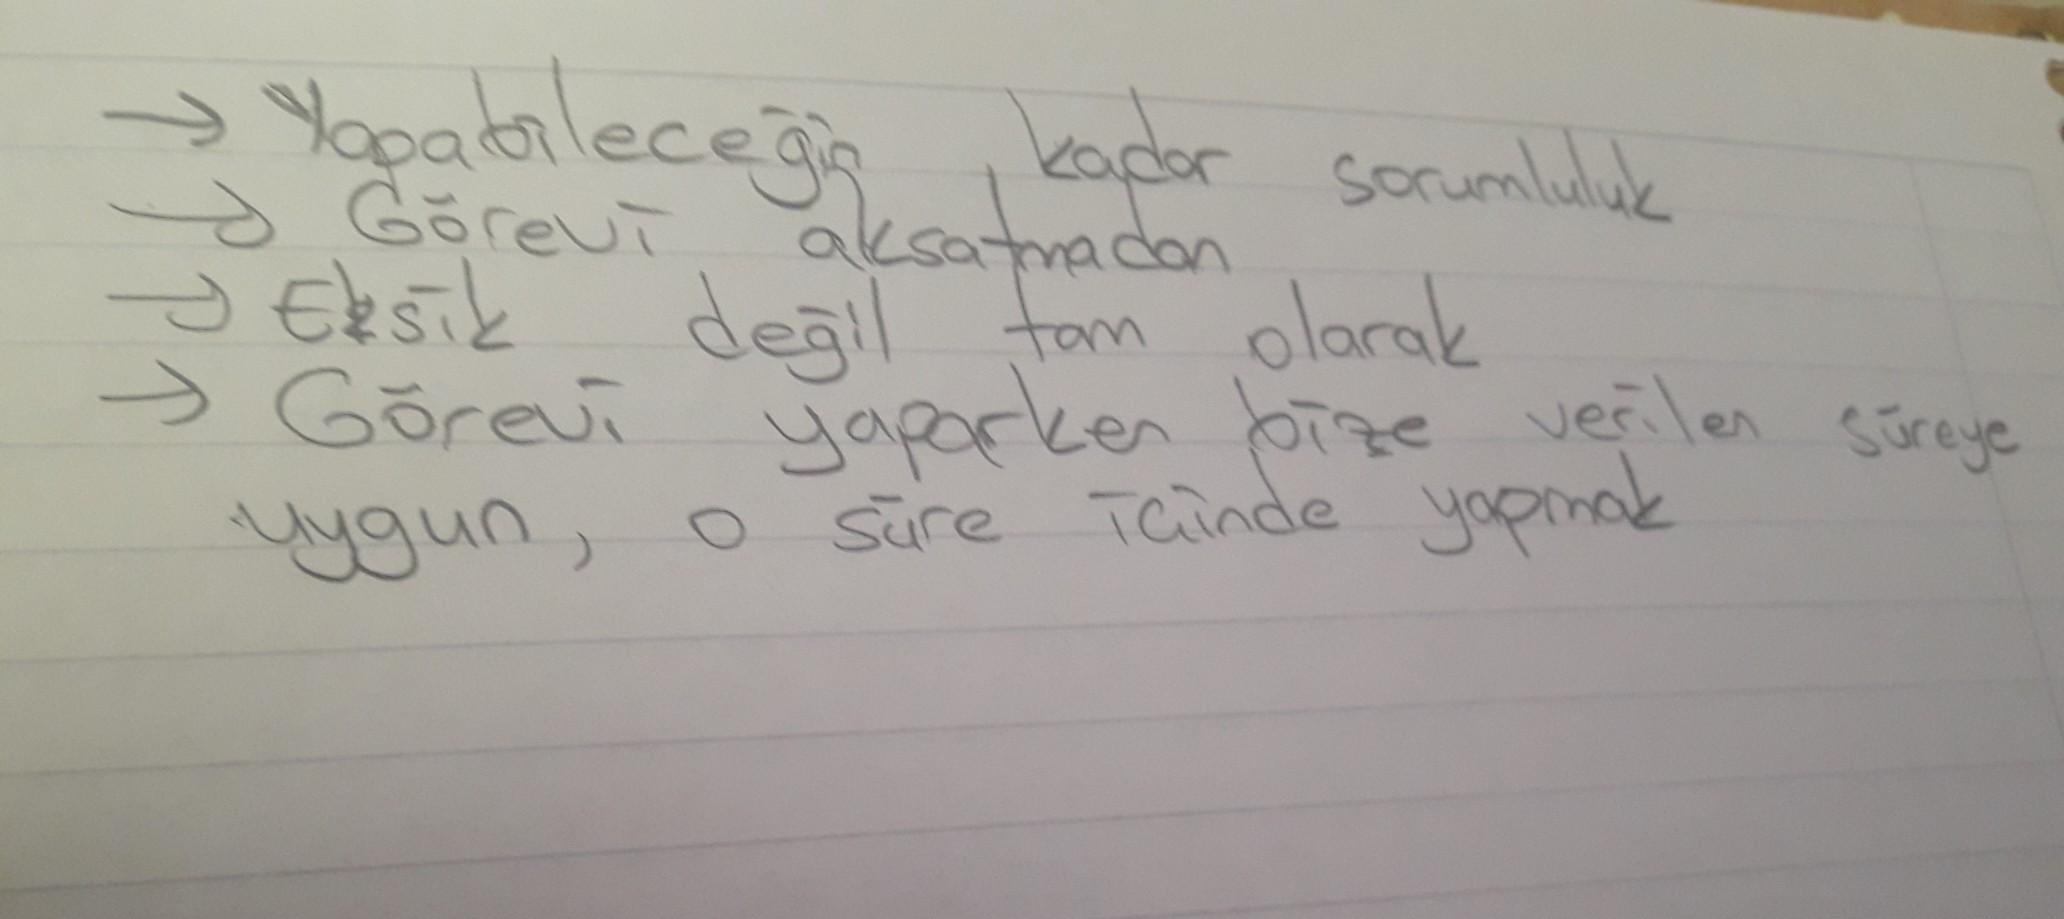 → Yapabileceğin kadar sorumluluk
→ Görevi aksatmadan
→ Eksik değil tam olarak
→ Görevi yaparken bize verilen süreye
uygun, o süre içinde yapmak